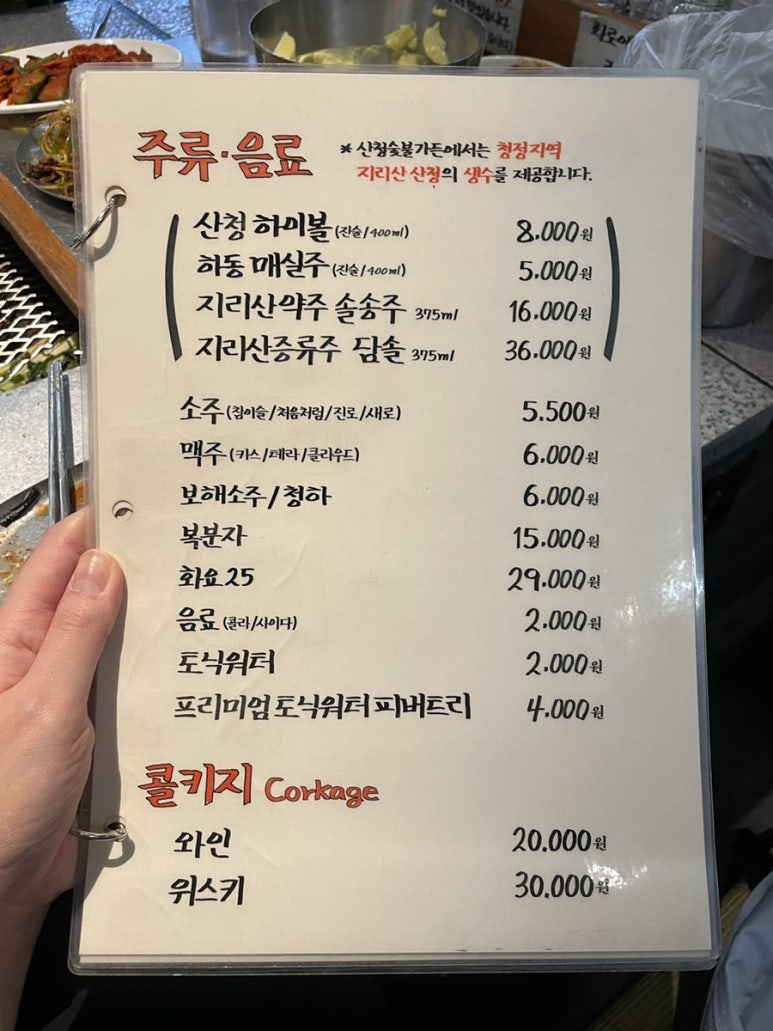 주류·음료
* 산청숯불가든에서는 청정지역
지리산 산청의 생수를 제공합니다.
산청 하이볼 (잔술/400ml) 8.000원
하동 매실주 (잔술/400ml) 5.000원
지리산약주 솔송주 375ml 16.000원
지리산증류주 담솔 375ml 36.000원
소주 (참이슬/처음처럼/진로/새로) 5.500원
맥주 (카스/테라/클라우드) 6.000원
보해소주/청하 6.000원
복분자 15.000원
화요25 29.000원
음료 (콜라/사이다) 2.000원
토닉워터 2.000원
프리미엄토닉워터 피버트리 4.000원
콜키지 Corkage
와인 20.000원
위스키 30.000원